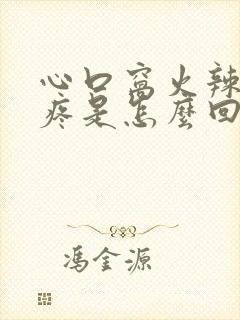 心口窩火辣
疼是怎麼回
馮金源